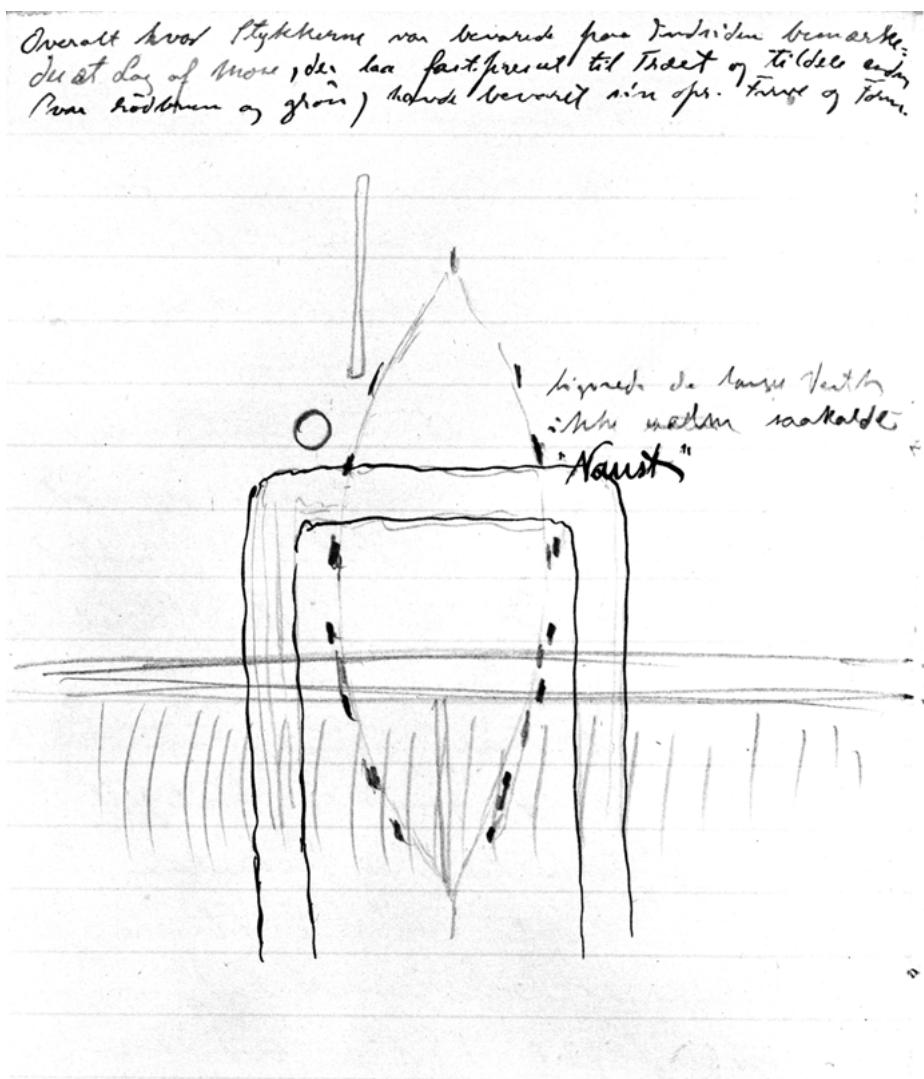 Overalt hvor Stykkerne var bevarede paa Indsiden bemærke-
des et Lag af Mose, der laa fastpresset til Træet og tildels endnu
(var rödbrun og grön) havde bevaret sin opr. Farve og Form.
lignede de lange
ikke saakaldte
"Naust"